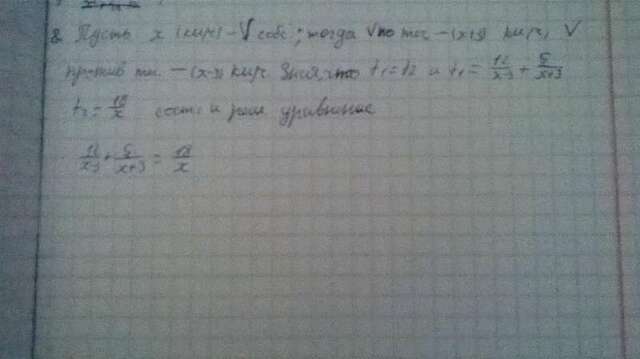 8 Пусть x (км/ч) - V собс; тогда V по теч - (x+3) км/ч, V
против теч - (x-3) км/ч Зная, что t₁=t₂ и t₁ = 12/(x-3) + 5/(x+3)
t₂ = 18/x сост и реш уравнение
12/(x-3) + 5/(x+3) = 18/x